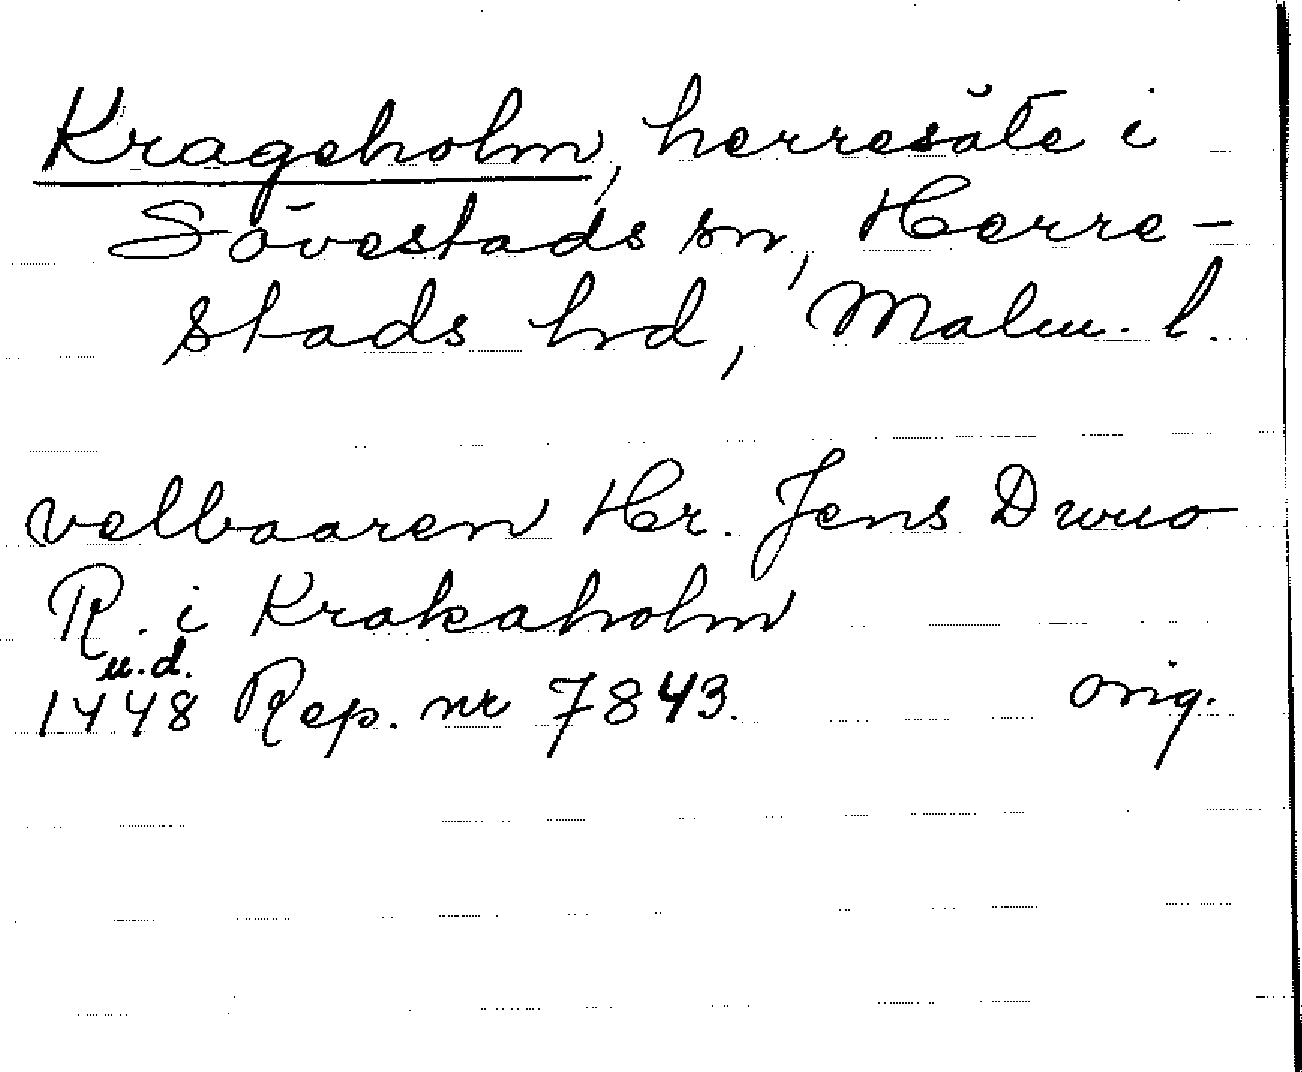 Krageholm, herresäte i
Sövestads sn, Herre-
stads hd, Malm. l.
velbaaren Hr. Jens Dwuo
R. i Krakaholm
u.d.
1448 Rep. nr 7843. orig.